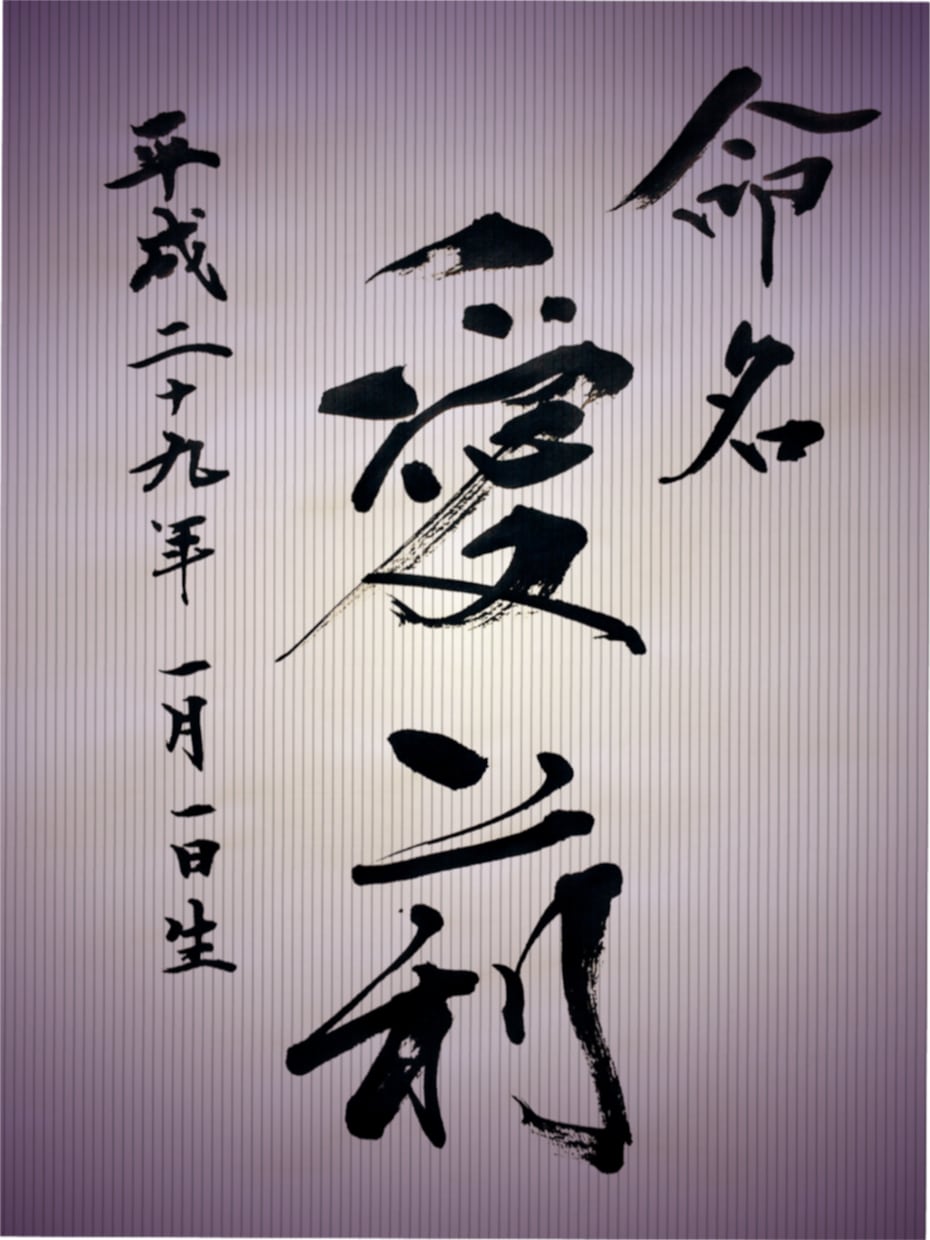 命名
愛莉
平成二十九年 一月一日生